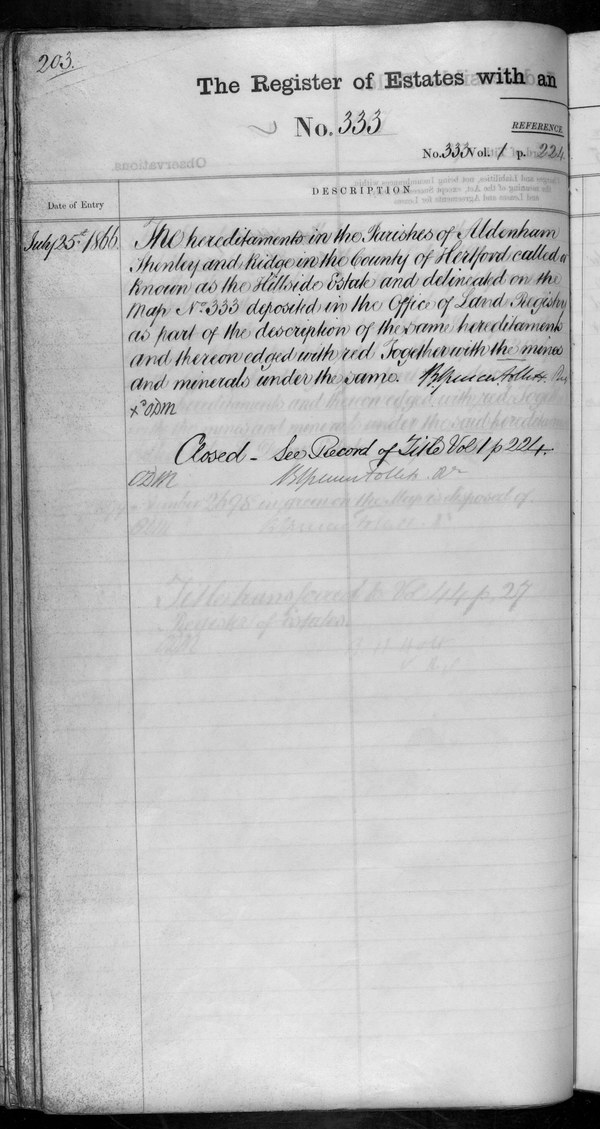 203.
The Register of Estates with an
No. 333
REFERENCE
No. 333 Vol. 1 p. 224
Observations
DESCRIPTION
Date of Entry
July 25th 1866
The hereditaments in the Parishes of Aldenham
Shenley and Ridge in the County of Hertford called o
known as the Hillside Estate and delineated on the
Map No. 333 deposited in the Office of Land Registry
as part of the description of the same hereditaments
and thereon edged with red Together with the mines
and minerals under the same. Brent Spencer Follett
xd ODM
Closed - See Record of Title Vol 1 p 224.
ODM
Title transferred to Vol 44 p. 27
Register of Estates.